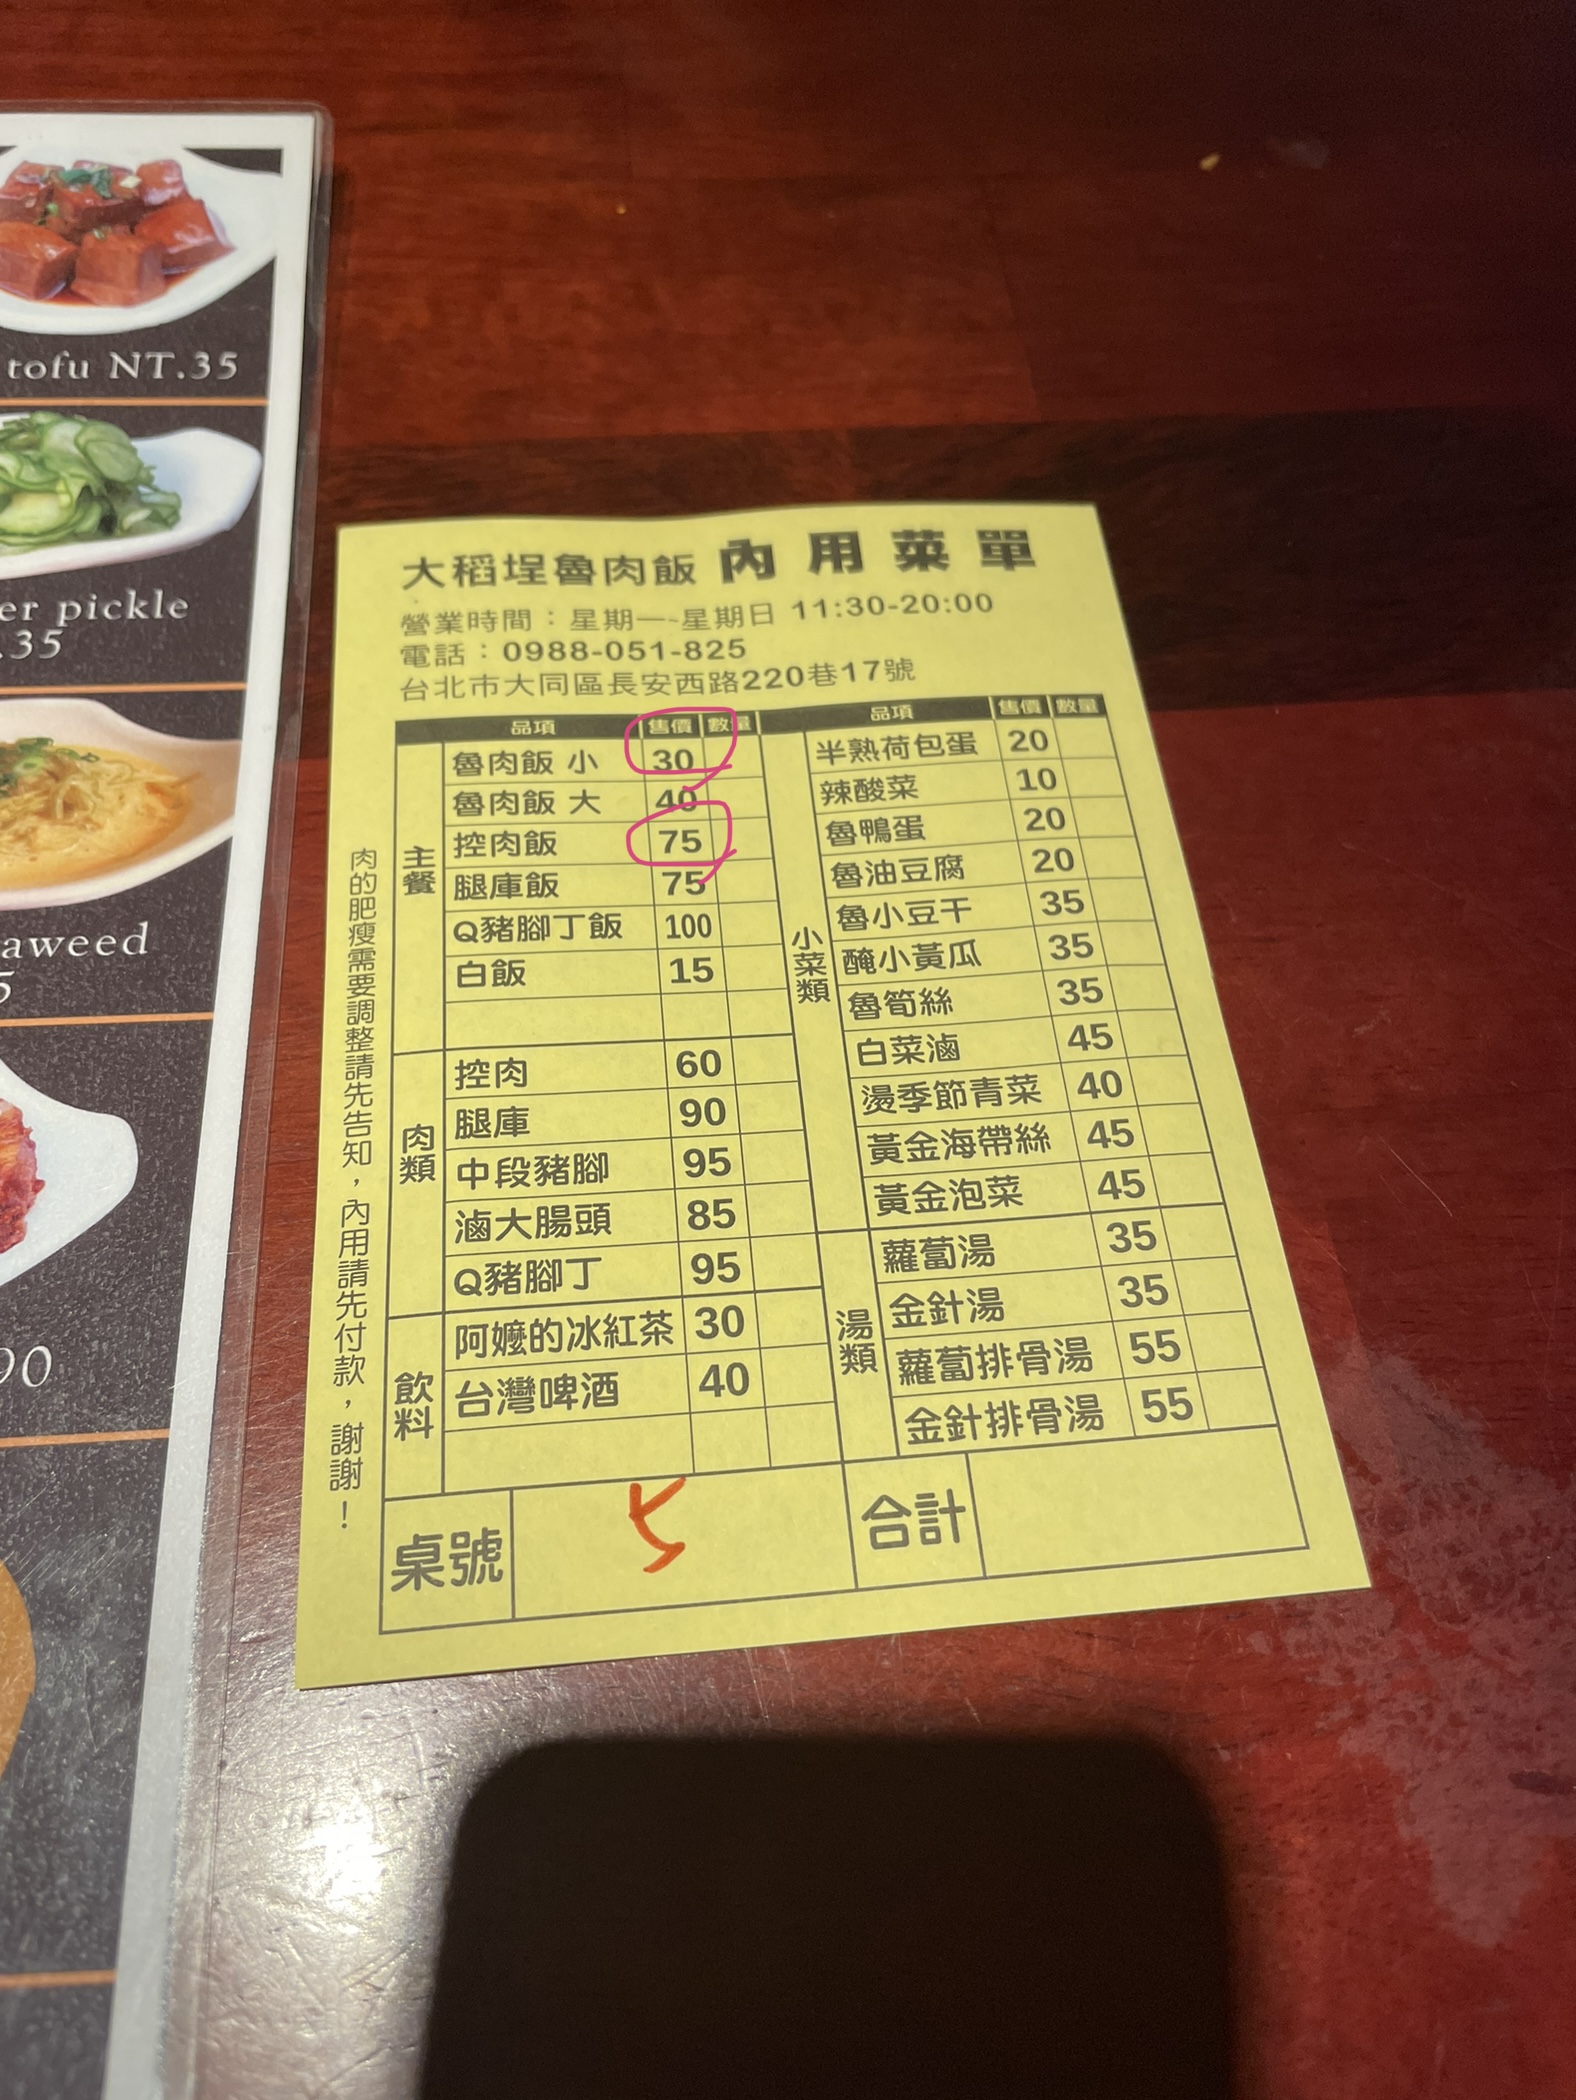 tofu NT.35
er pickle
.35
aweed
5
90
大稻埕魯肉飯 內用菜單
營業時間：星期一~星期日 11:30-20:00
電話：0988-051-825
台北市大同區長安西路220巷17號
品項 售價 數量
主餐
魯肉飯 小 30
魯肉飯 大 40
控肉飯 75
腿庫飯 75
Q豬腳丁飯 100
白飯 15
肉類
控肉 60
腿庫 90
中段豬腳 95
滷大腸頭 85
Q豬腳丁 95
飲料
阿嬤的冰紅茶 30
台灣啤酒 40
品項 售價 數量
小菜類
半熟荷包蛋 20
辣酸菜 10
魯鴨蛋 20
魯油豆腐 20
魯小豆干 35
醃小黃瓜 35
魯筍絲 35
白菜滷 45
燙季節青菜 40
黃金海帶絲 45
黃金泡菜 45
湯類
蘿蔔湯 35
金針湯 35
蘿蔔排骨湯 55
金針排骨湯 55
桌號 5 合計
肉的肥瘦需要調整請先告知，內用請先付款，謝謝！